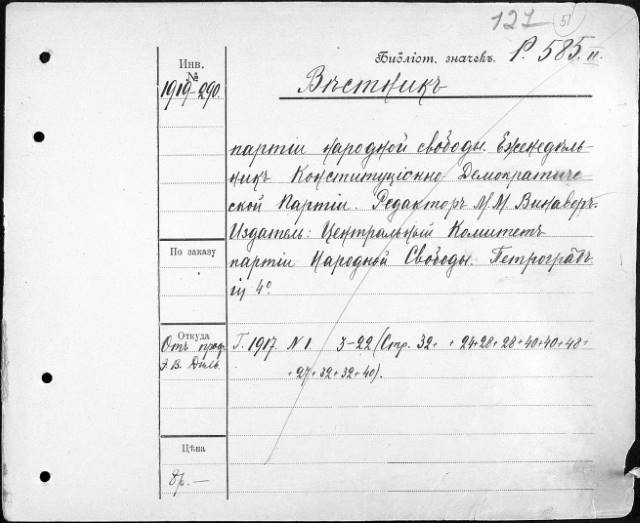 127 51
Библіот. значекъ. P. 585. II.
Инв.
№
1919-290.
Вѣстникъ
партіи народной свободы. Еженедѣль-
никъ Конституціонно Демократиче-
ской Партіи. Редакторъ М. М. Винаверъ.
Издатель: Центральный Комитетъ
По заказу
партіи Народной Свободы. Петроградъ.
in 4°
Откуда
Отъ проф.
Э. В. Диль.
Г. 1917 N 1. 3-22 (Стр. 32+ + 24+28+28+40+40+48+
+27+32+32+40).
Цѣна
8р.—